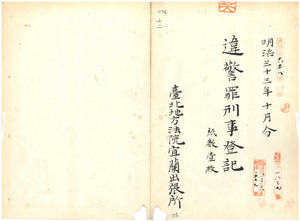 明治三十三年十月分
違警罪刑事登記
紙數壹枚
臺北地方法院宜蘭出張所